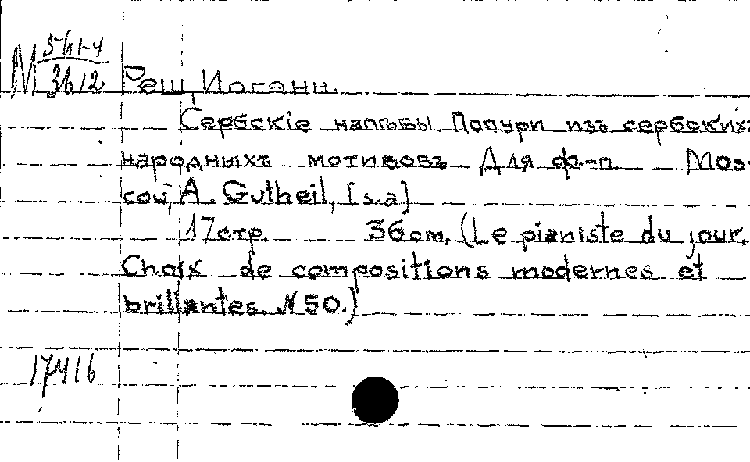 М 561-4
3612
Реш, Иоганн.
Сербскіе напѣвы Попури изъ сербскихъ
народныхъ мотивовъ Для ф.-п. Mos-
cou, A. Gutheil, [s.a]
17стр. 36cm. (Le pianiste du jour.
Choix de compositions modernes et
brillantes. N 50.)
17416